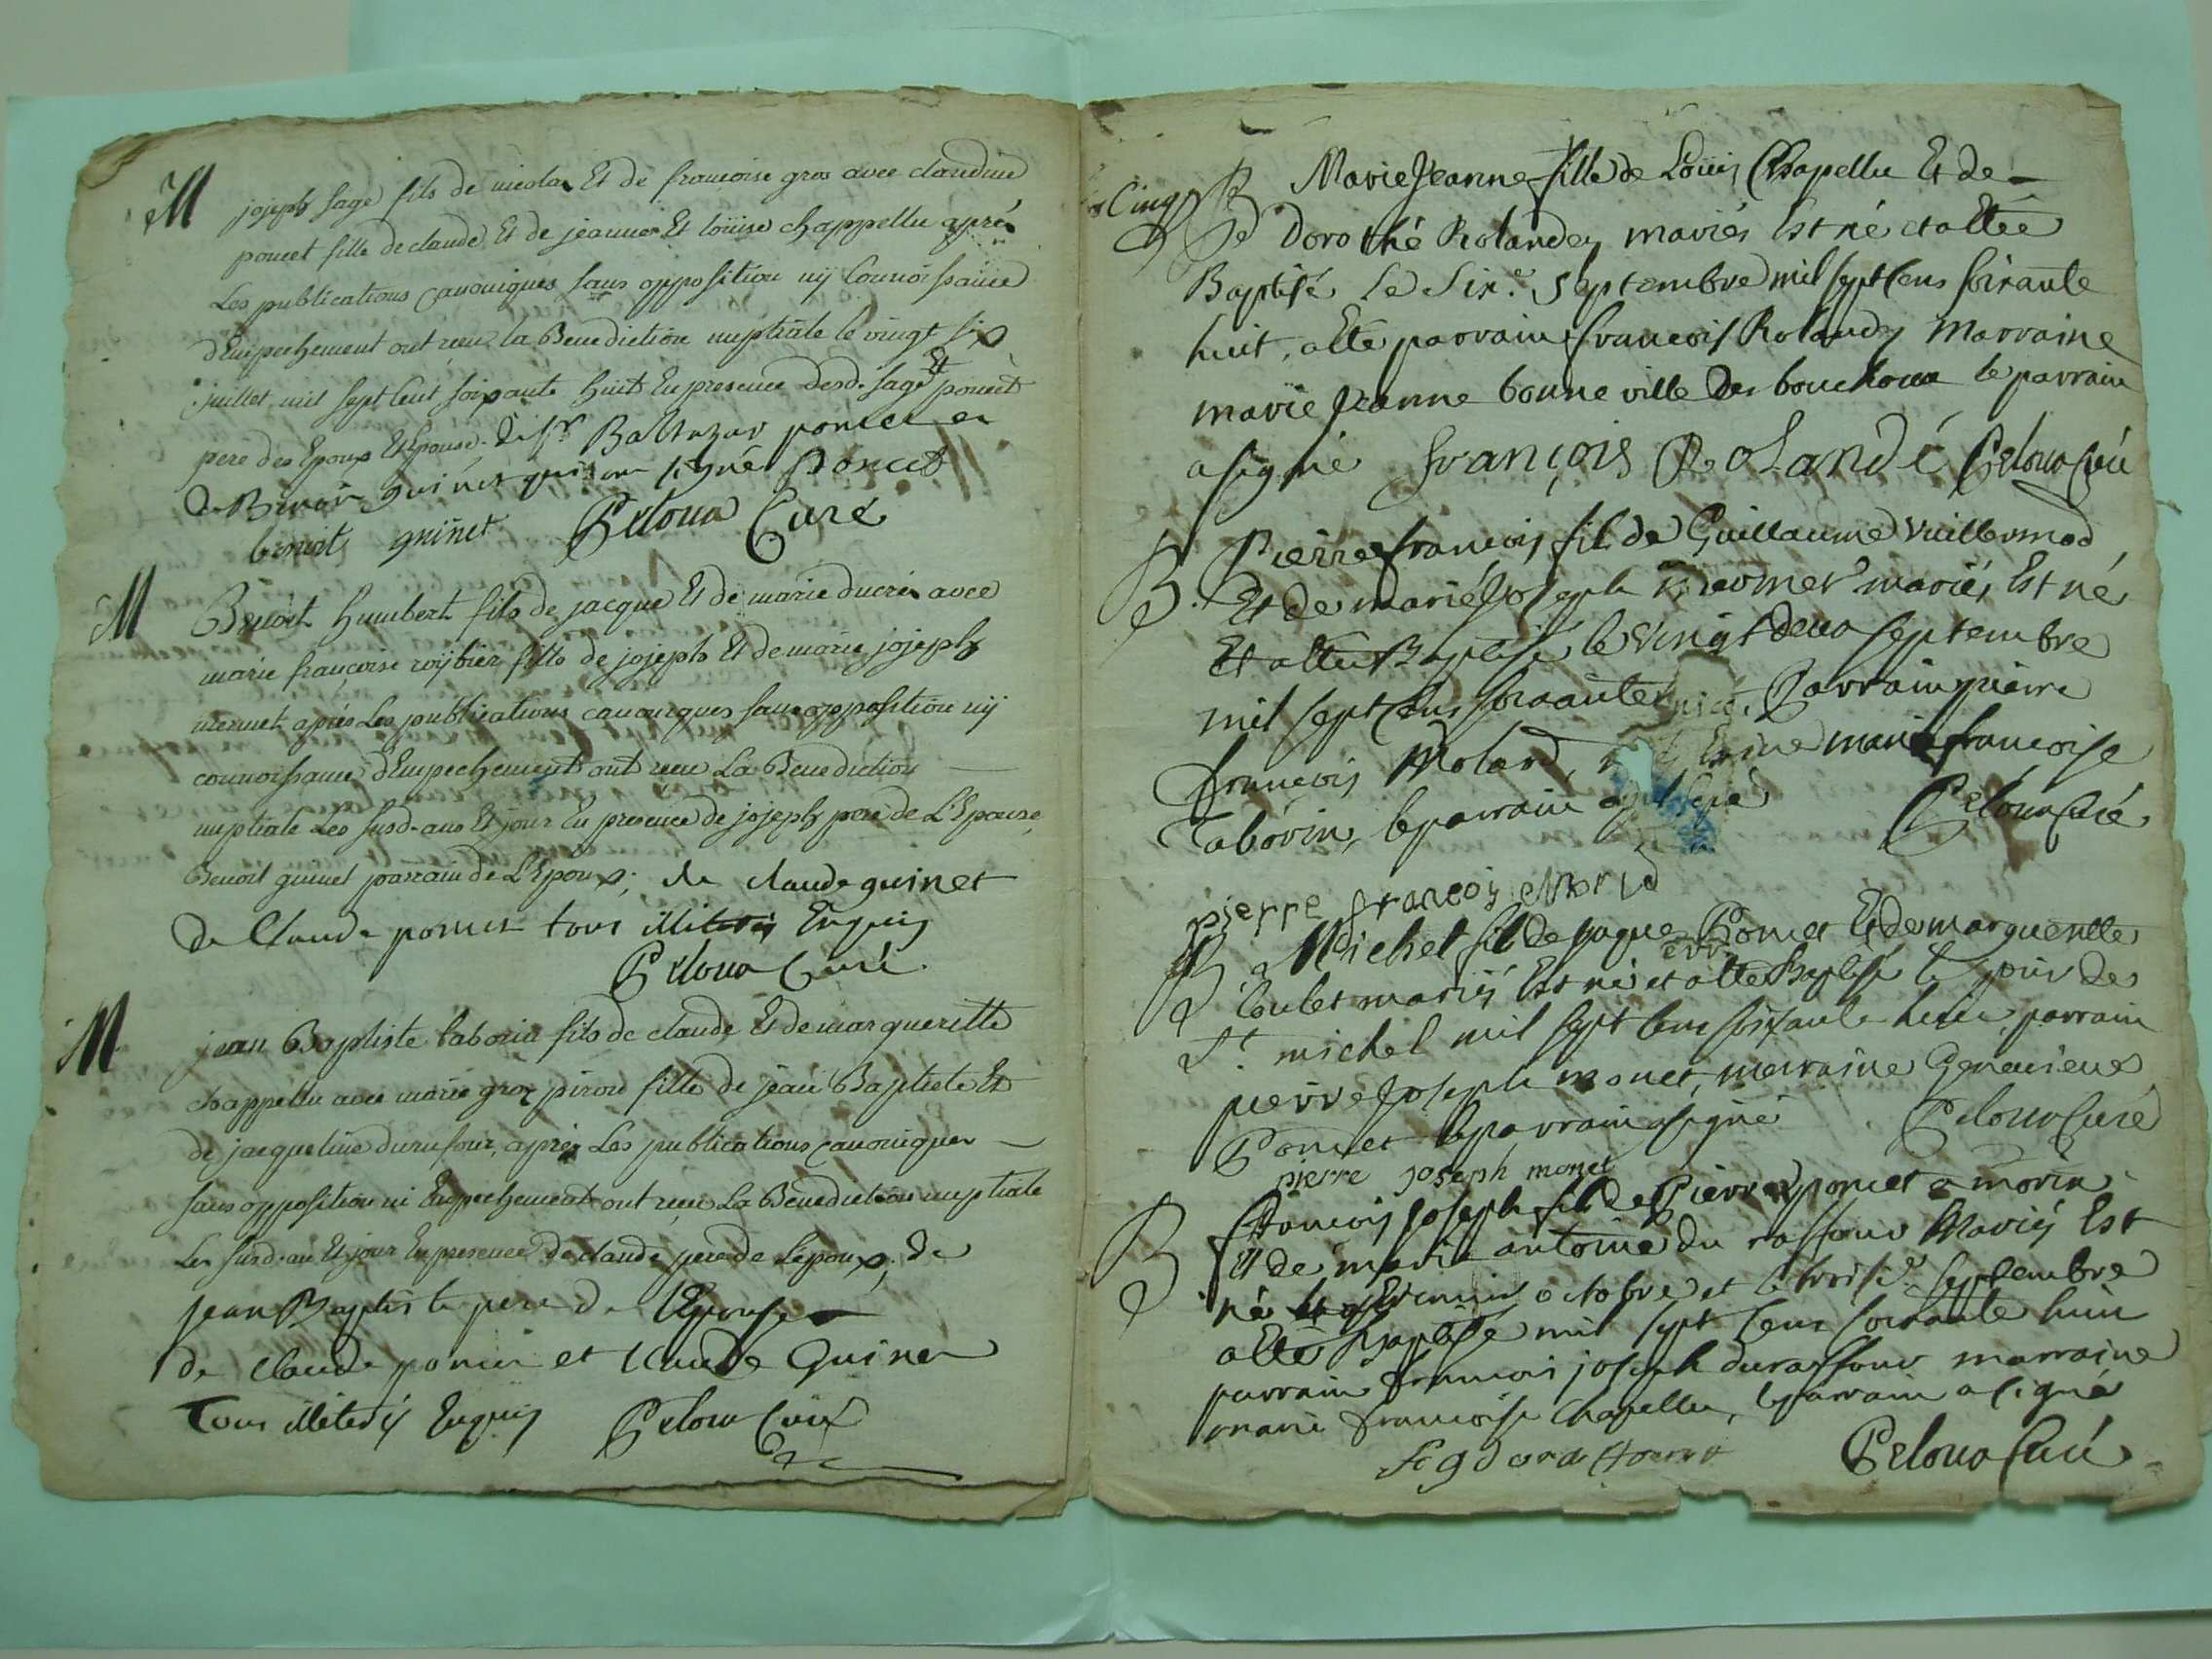 M
joseph sage fils de nicolas Et de francoise gros avec claudine
poncet fille de claude Et de jeanne Et loüise chappellu aprés
Les publications canoniques sans opposition nÿ Connoissance
d'Empechement ont reçu la Benediction nuptiale le vingt six
juillet mil sept cent soixante huit En presence desd. sage Et poncet
pere des Epoux Et Epouse. de Sr Baltazar poncet et
de Benoit guinet qui ont signé Poncet
benoit guinet Peloux Curé
M
Benoit humbert fils de jacque Et de marie ducré avec
marie francoise roÿbier fille de joseph Et de marie joseph
mermet aprés Les publications canoniques sans opposition nÿ
connoissance d'Empechement ont reçu La Benediction
nuptiale Les susd. ans Et jour En presence de joseph pere de L'Epouse
Benoit guinet parrain de L'Epoux; de claude guinet
de Claude poncet tous illiterés Enquis
Peloux Curé
M
jean Baptiste taborin fils de claude Et de margueritte
chappellu avec marie groz piron fille de jean Baptiste Et
de jacqueline duraffour, aprés Les publications canoniques
sans opposition ni Empechement ont reçu La Benediction nuptiale
Les susd. an Et jour En presence de claude pere de L'epoux, de
jean Baptiste pere de l'Epouse
de Claude poncet et Claude Guinet
Tous illiterés Enquis Peloux Curé
Cinq B
Marie Jeanne fille de Loüis Chapellu Et de
Dorothé Rolandez mariés Est né et a Eté
Baptisé Le Sixe. Septembre mil sept Cens soixante
huit, a Eté parrain francois Rolandez Marraine
marie Jeanne bonneville des bouchoux le parrain
a signé françois Rolandé Peloux Curé
B
Pierre francois fil de Guillaume Vuillermod
Et de marie Joseph mermet mariés Est né
Et a Eté Baptisé le Vingt deux septembre
mil sept Cens soixante huit, Parrain pierre
francois Molard, marraine marie francoise
Taborin, le parrain a signé Peloux Curé
pierre francois Morld
B
Michel fil de jaque Poncet Et de margueritte
Coulet mariés Est né et a Eté Baptisé le jour de
St. michel mil sept Cens soixante huit, parrain
pierre Joseph monet, marraine Genevieve
Poncet le parrain a signé Peloux Curé
pierre joseph monet
B
francois Joseph fil de Pierre poncet a morin
Et de marie antoine du raffour Mariés Est
né le premier octobre et le troisie. septembre
a Eté Baptisé mil sept Cens soixante huit
parrain francois joseph duraffour marraine
marie francoise Chapellu, le parrain a signé
Peloux Curé